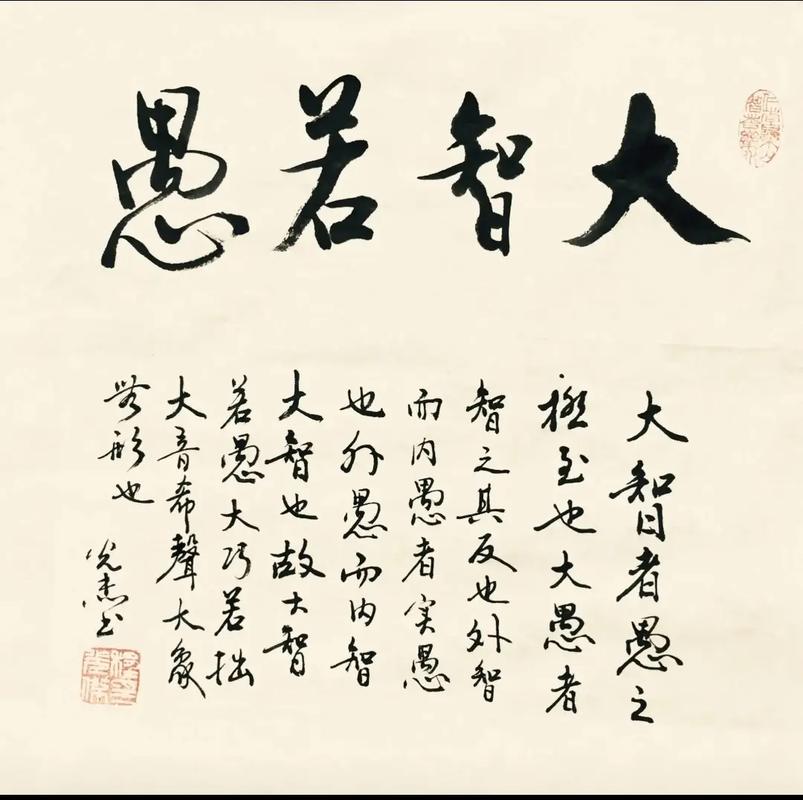 大智若愚
大智者愚之
極至也大愚者
智之其反也外智
而内愚者实愚
也外愚而内智
大智也故大智
若愚大巧若拙
大音希聲大象
無形也
光杰书